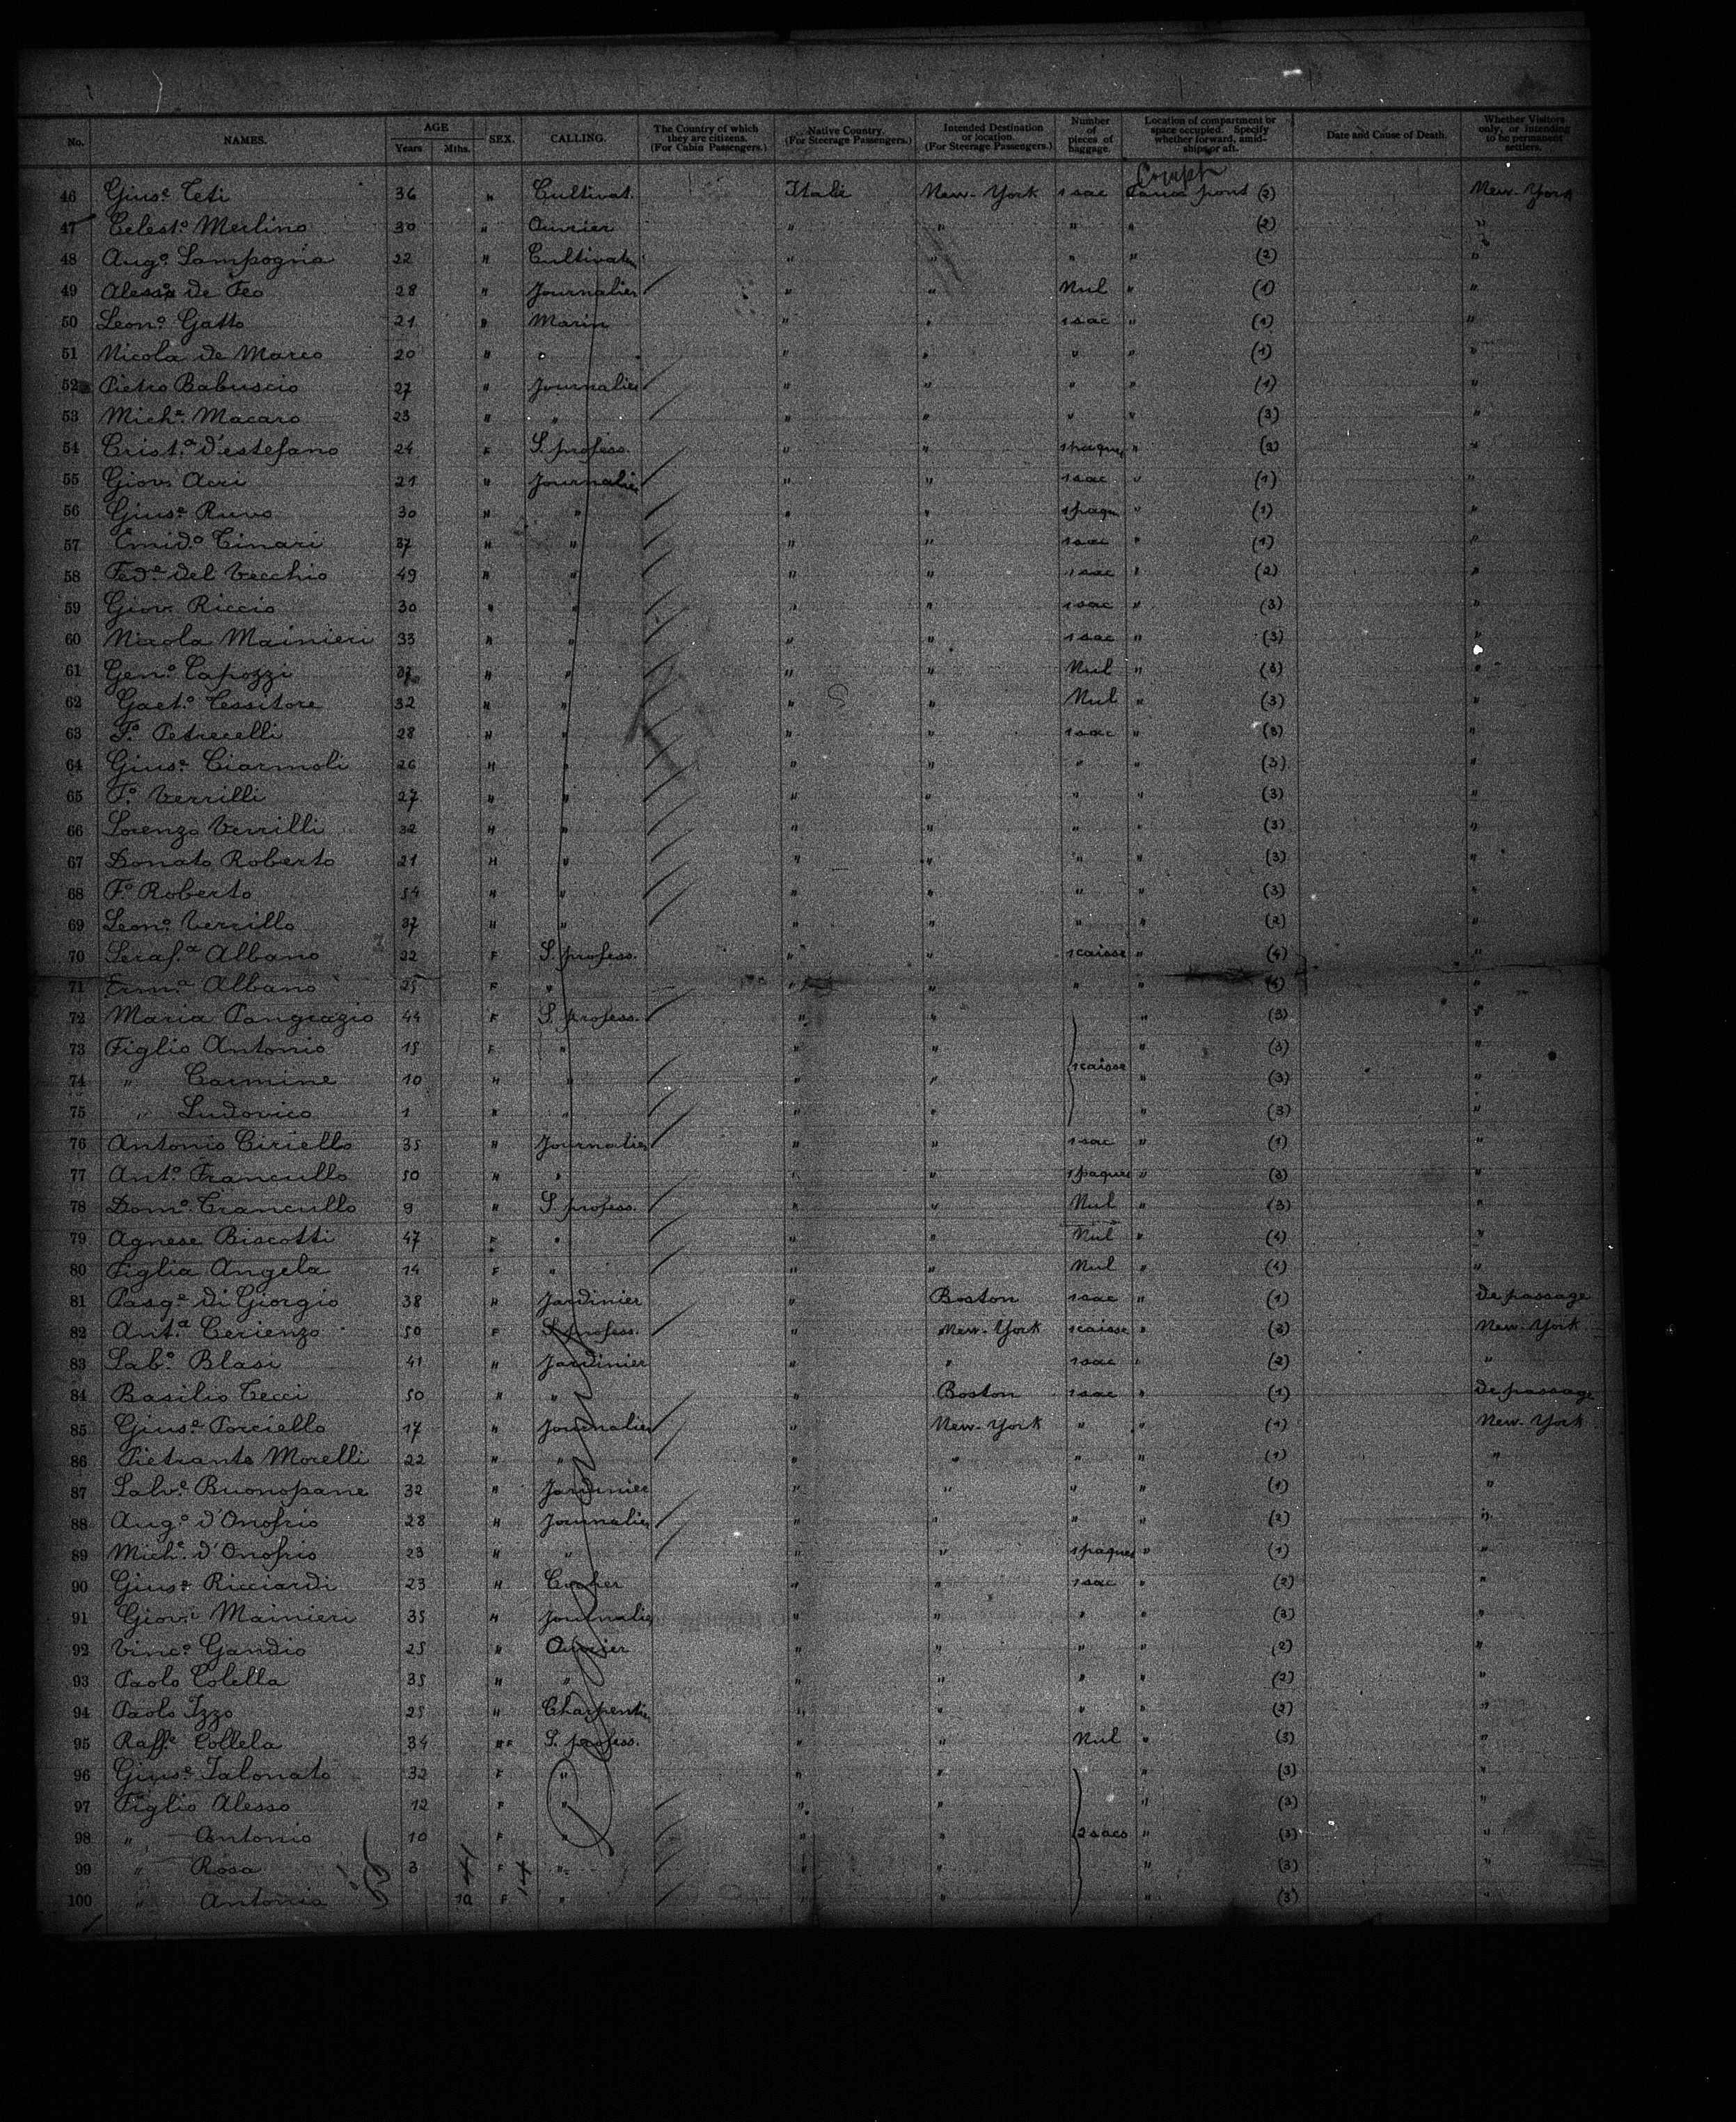 No. NAMES. AGE Years Mths. SEX. CALLING. The Country of which they are citizens. (For Cabin Passengers.) Native Country. (For Steerage Passengers.) Intended Destination or location. (For Steerage Passengers.) Number of pieces of baggage. Location of compartment or space occupied. Specify whether forward, amidships or aft. Date and Cause of Death. Whether Visitors only, or intending to be permanent settlers.
46 Gius.e Teti 36 " Cultivat. Italie New-York 1 sac (2) New-York
47 Celest.o Merlino 30 " Ouvrier " " " " (2) "
48 Aug.o Lampogna 22 " Cultivat " " " " (2) "
49 de Feo 28 " Journalier " " Nul " (1) "
50 Leon.o Gatto 21 " Marin " " 1 sac " (1) "
51 Nicola de Marco 20 " " " " " " (1) "
52 Pietro Babuscio 27 " Journalier " " " " (1) "
53 Mich.e Macaro 23 " " " " " " (3) "
54 Crist.a d'estefano 24 F S. profess. " " 1 paque " "
55 Giov. Acri 21 " Journalier " " 1 sac " (1) "
56 Gius.e Ruvo 30 " " " " 1 paqu " (1) "
57 Emid.o Cinari 37 " " " " 1 sac " (1) "
58 Fed.e del Vecchio 49 " " " " 1 sac " (2) "
59 Giov. Riccio 30 " " " " 1 sac " (3) "
60 Nicola Mainieri 33 " " " " 1 sac " (3) "
61 Gen.o Capozzi " " " " Nul " (3) "
62 Gaet.o Tessitore 32 " " " " Nul " (3) "
63 F.o Petrecelli 28 " " " " 1 sac " (3) "
64 Gius.e Ciarmoli 26 " " " " " " (3) "
65 F.o Verrilli 27 " " " " " " (3) "
66 Lorenzo Verrilli 32 " " " " " " (3) "
67 Donato Roberto 21 " " " " " " (3) "
68 F.o Roberto 54 " " " " " " (3) "
69 Leon.o Verrillo 37 " " " " " " (2) "
70 Seraf.a Albano 22 F S. profess. " " 1 caisse " (4) "
71 Albano 25 F " " " " " (4) "
72 Maria Pangrazio 44 F S. profess. " " " (3) "
73 Figlio Antonio 15 F " " " " (3) "
1 caisse
74 " Carmine 10 " " " " " (3) "
75 " Ludovico 1 " " " " " (3) "
76 Antonio Ciriello 35 " Journalier " " 1 sac " (1) "
77 Ant.o Francullo 50 " " " " 1 paque " (3) "
78 Dom.o Francullo 9 " S. profess. " " Nul " (3) "
79 Agnese Biscotti 47 F " " " Nul " (4) "
80 Figlia Angela 14 F " " " Nul " (4) "
81 Pasq.e di Giorgio 38 " Jardinier " Boston 1 sac " (1) De passage
82 Ant.a Cerienzo 50 F S. profess. " New-York 1 caisse " (3) New-York
83 Sab.o Blasi 41 " Jardinier " " 1 sac " (2) "
84 Basilio Tecci 50 " " " Boston 1 sac " (1) De passage
85 Gius.e Porciello 17 " Journalier " New-York " " (1) New-York
86 Pietranto Morelli 22 " " " " " " (1) "
87 Salv.e Buonopane 32 " Jardinier " " " " (1) "
88 Aug.o d'Onofrio 28 " Journalier " " " " (2) "
89 Mich.e d'Onofrio 23 " " " " 1 paque " (1) "
90 Gius.e Ricciardi 23 " Cocher " " 1 sac " (2) "
91 Giov.i Mainieri 35 " Journalie " " " " (3) "
92 Vinc.o Gandio 25 " Ouvrier " " " " (2) "
93 Paolo Colella 35 " " " " " " (2) "
94 Paolo Izzo 25 " Charpentie " " " " (2) "
95 Raff.e Collela 34 F S. profess. " " Nul " (3) "
96 Gius.e Talonato 32 F " " " " (3) "
97 Figlio Alesso 12 F " " " " (3) "
98 " Antonio 10 F " " " 2 sacs " (3) "
99 " Rosa 3 F " " " " (3) "
100 " Antonia 10 F " " " " (3) "